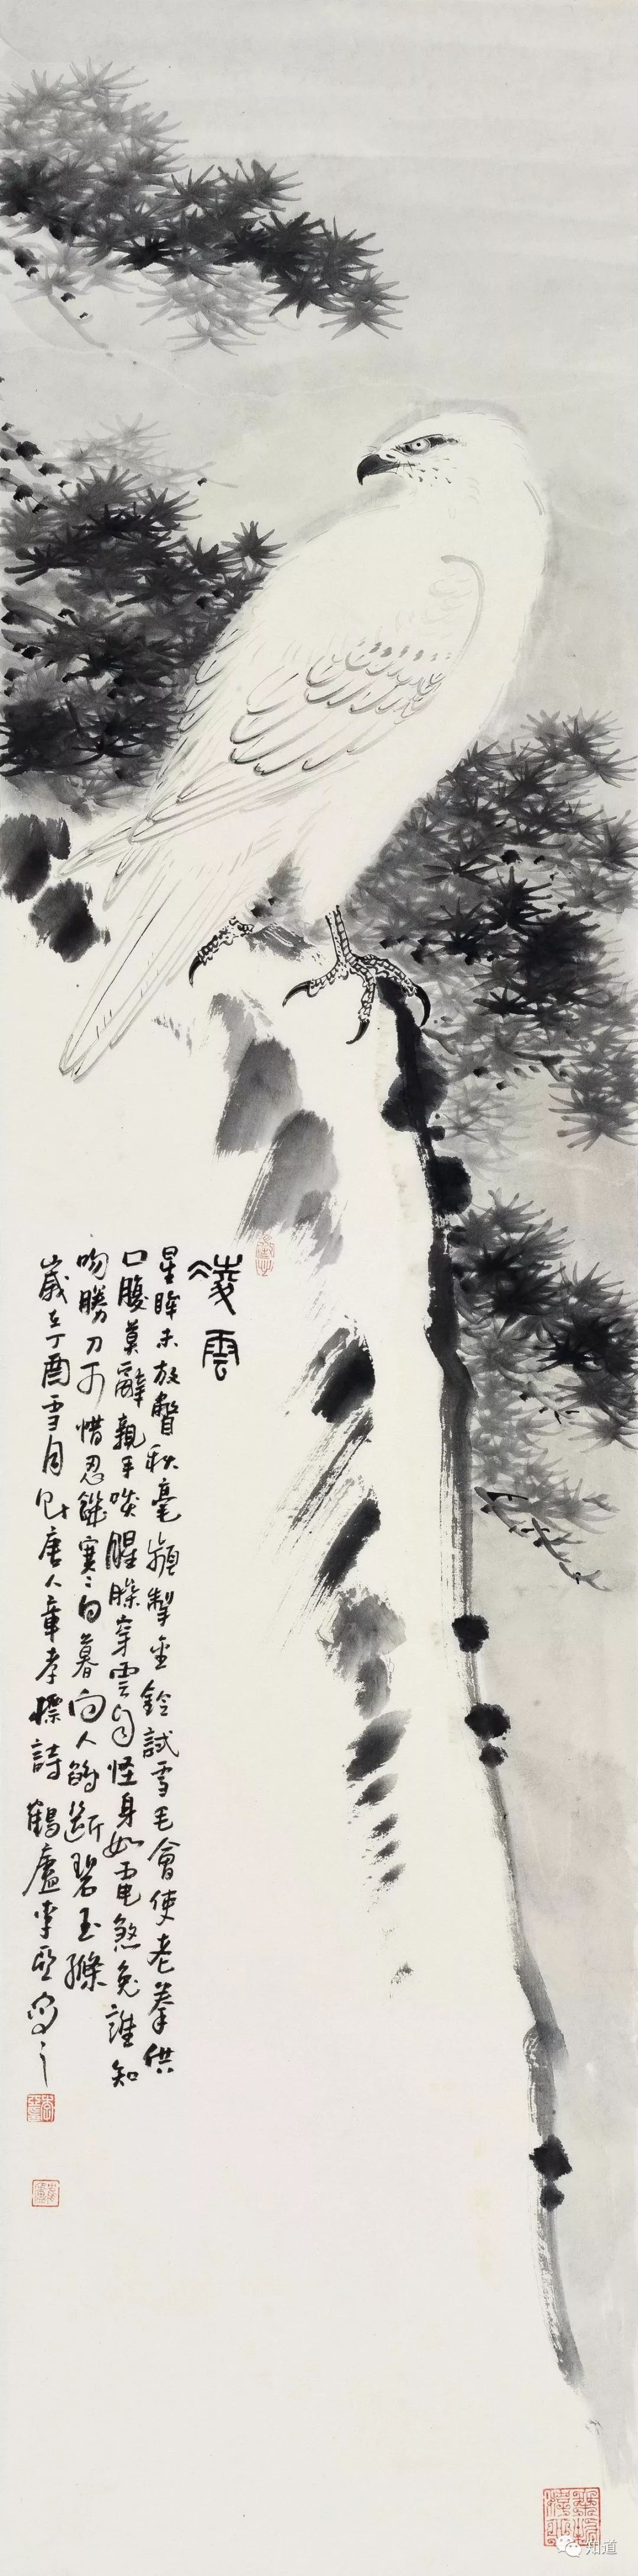 凌雲
星眸未放瞥秋毫頻掣金鈴試雪毛會使老拳供
口腹莫辭親手啖腥臊穿雲自怪身如電煞兔誰知
吻勝刀可惜忍饑寒日暮向人鵮斷碧玉縧
歲在丁酉雪月㠯唐人章孝標詩 鶴廬李亞寫之
知道